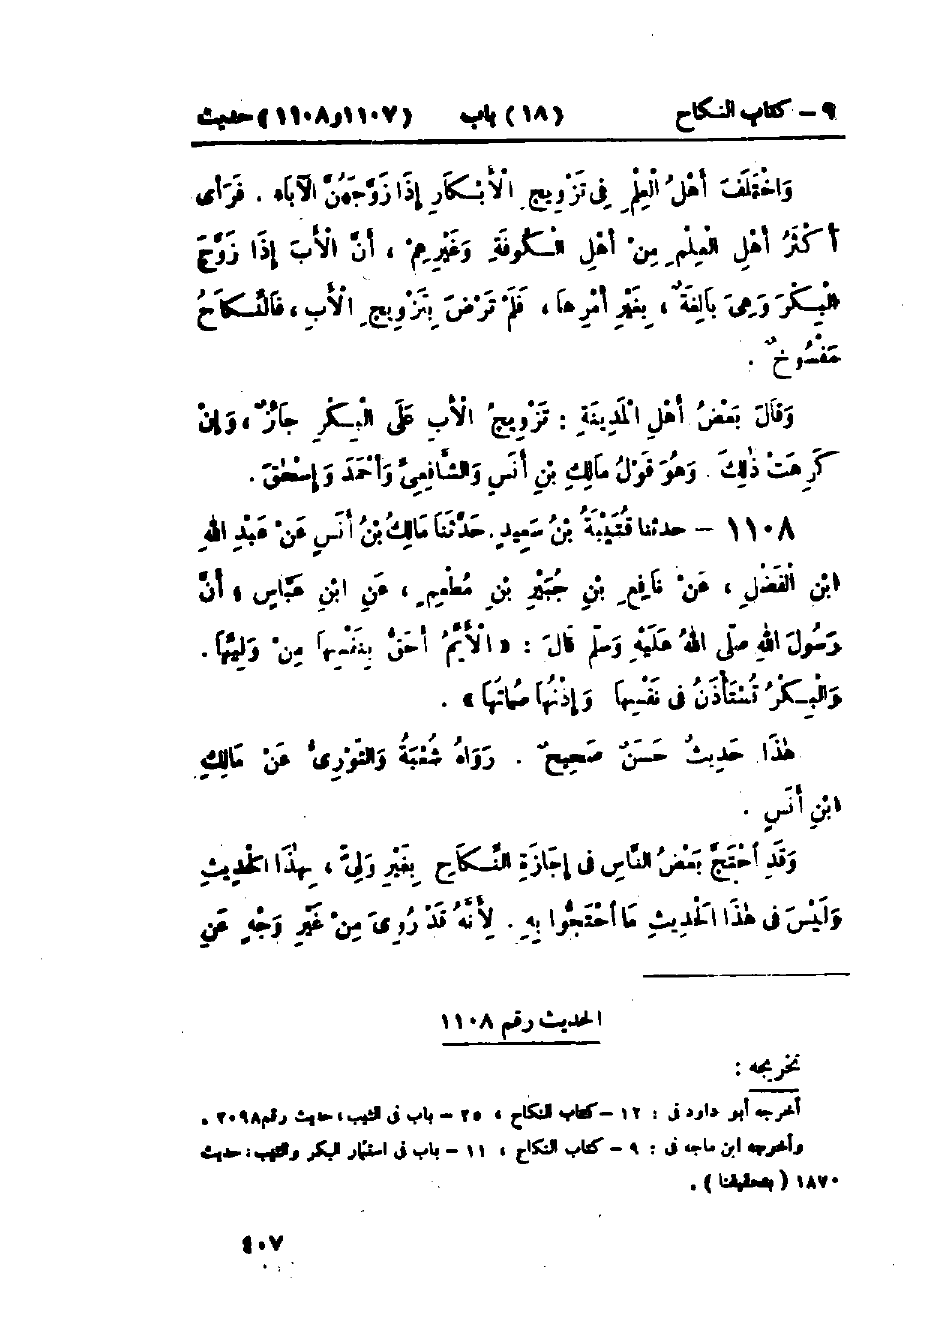 ٩ – كتاب النكاح (١٨) باب (١١٠٧ و ١١٠٨) حديث
وَاخْتَلَفَ أَهْلُ الْعِلْمِ فِى تَزْوِيجِ الْأَبْكَارِ إِذَا زَوَّجَهُنَّ الْآبَاءُ . فَرَأَى
أَكْثَرُ أَهْلِ الْعِلْمِ مِنْ أَهْلِ الْكُوفَةِ وَغَيْرِهِمْ ، أَنَّ الْأَبَ إِذَا زَوَّجَ
الْبِكْرَ وَهِىَ بَالِغَةٌ ، بِغَيْرِ أَمْرِهَا ، فَلَمْ تَرْضَ بِتَزْوِيجِ الْأَبِ ، فَالنِّكَاحُ
مَفْسُوخٌ .
وَقَالَ بَعْضُ أَهْلِ الْمَدِينَةِ : تَزْوِيجُ الْأَبِ عَلَى الْبِكْرِ جَائِزٌ ، وَإِنْ
كَرِهَتْ ذٰلِكَ . وَهُوَ قَوْلُ مَالِكِ بْنِ أَنَسٍ وَالشَّافِعِىِّ وَأَحْمَدَ وَإِسْحٰقَ .
١١٠٨ – حدثنا قُتَيْبَةُ بْنُ سَعِيدٍ. حَدَّثَنَا مَالِكُ بْنُ أَنَسٍ عَنْ عَبْدِ اللهِ
ابْنِ الْفَضْلِ ، عَنْ نَافِعِ بْنِ جُبَيْرِ بْنِ مُطْعِمٍ ، عَنِ ابْنِ عَبَّاسٍ ، أَنَّ
رَسُولَ اللهِ صَلَّى اللهُ عَلَيْهِ وَسَلَّمَ قَالَ : « الْأَيِّمُ أَحَقُّ بِنَفْسِهَا مِنْ وَلِيِّهَا .
وَالْبِكْرُ تُسْتَأْذَنُ فِى نَفْسِهَا وَإِذْنُهَا صُمَاتُهَا » .
هٰذَا حَدِيثٌ حَسَنٌ صَحِيحٌ . رَوَاهُ شُعْبَةُ وَالثَّوْرِىُّ عَنْ مَالِكِ
ابْنِ أَنَسٍ .
وَقَدِ احْتَجَّ بَعْضُ النَّاسِ فِى إِجَازَةِ النِّكَاحِ بِغَيْرِ وَلِىٍّ ، بِهٰذَا الْحَدِيثِ
وَلَيْسَ فِى هٰذَا الْحَدِيثِ مَا احْتَجُّوا بِهِ . لِأَنَّهُ قَدْ رُوِىَ مِنْ غَيْرِ وَجْهٍ عَنِ
الحديث رقم ١١٠٨
تخريجه :
أخرجه أبو داود فى : ١٢ – كتاب النكاح ، ٢٥ – باب فى الثيب ، حديث رقم ٢٠٩٨ .
وأخرجه ابن ماجه فى : ٩ – كتاب النكاح ، ١١ – باب فى استئمار البكر والثيب ، حديث
١٨٧٠ ( بتحقيقنا ) .
٤٠٧